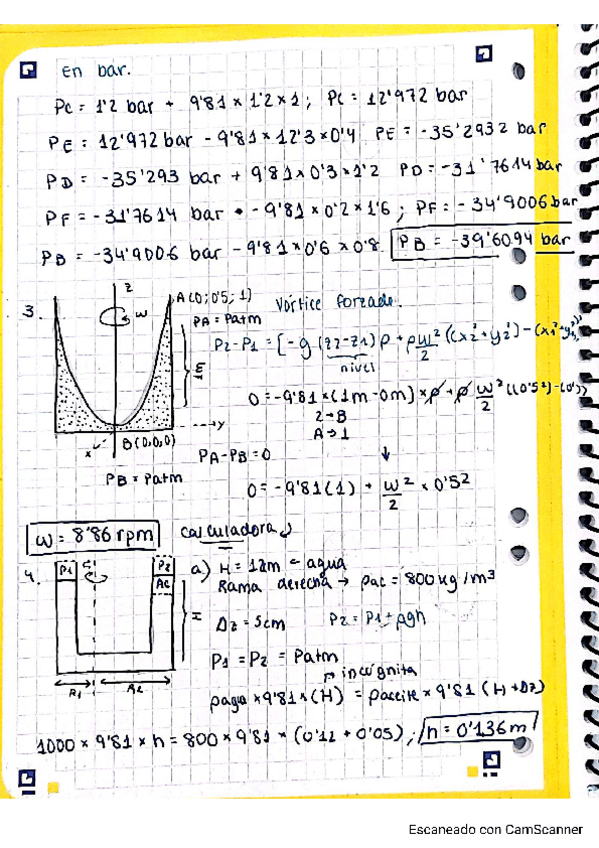 En bar.
Pc = 1'2 bar + 9'81 x 1'2 x 1; Pc = 12'972 bar
PE = 12'972 bar - 9'81 x 12'3 x 0'4 PE = -35'2932 bar
PD = -35'293 bar + 9'81 x 0'3 x 1'2 PD = -31'7614 bar
PF = -31'7614 bar • - 9'81 x 0'2 x 1'6 ; PF = - 34'9006 bar
PB = -34'9006 bar - 9'81 x 0'6 x 0'8 PB = -39'6094 bar
3.
z
w
A(0; 0'5; 1)
PA = Patm
1m
y
x
B(0,0,0)
PB = Patm
Vórtice forzado.
P2-P1 = [-g (z2-z1) ρ + ρw²/2 ((x2²+y2²)-(x1²+y1²))
nivel
0 = -9'81 x (1m - 0m) x ρ + ρ w²/2 ((0'5²)-(0²))
2→B
A→1
PA-PB = 0
0 = -9'81 (1) + w²/2 x 0'5²
w = 8'86 rpm
calculadora
4.
P1
P2
Ac
H
R1
R2
a) H = 12m = agua
Rama derecha → ρac = 800 kg/m³
Δz = 5cm P2 = P1 + ρgh
P1 = P2 = Patm
incógnita
ρagua x 9'81 x (H) = ρaceite x 9'81 (H + Δz)
1000 x 9'81 x h = 800 x 9'81 x (0'12 + 0'05); h = 0'136 m
Escaneado con CamScanner